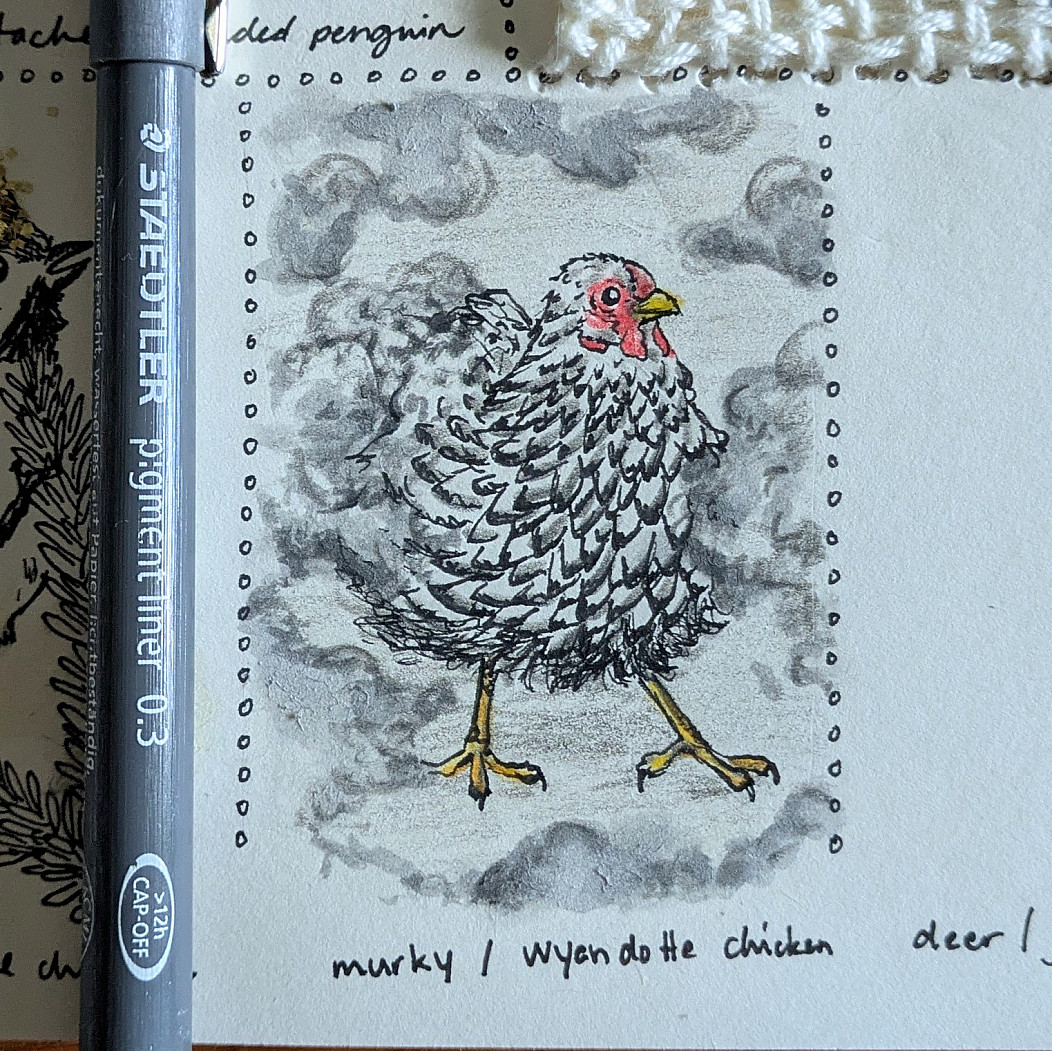 ded penguin
STAEDTLER pigment liner 0.3
dokumentenecht wasserfest auf Papier lichtbeständig
>12h
CAP-OFF
murky / wyandotte chicken
deer /